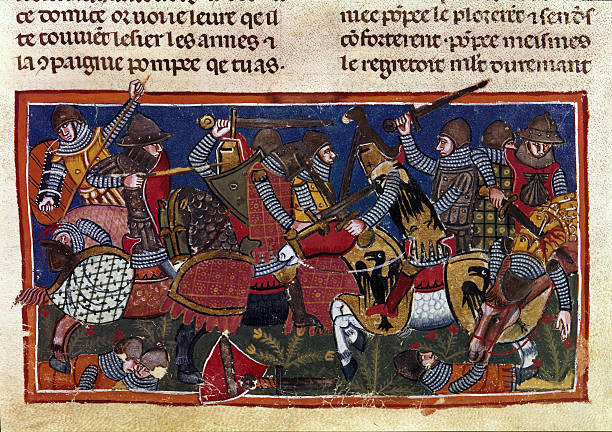 ce domice or uoi ie leure qe il
te couuẽt lesier les armes ⁊
la ꝯpaignie pompee qe tu as.
mee põpee le ploreret ⁊
cõforterent. põpee meismes
le regretoit mlt duremant